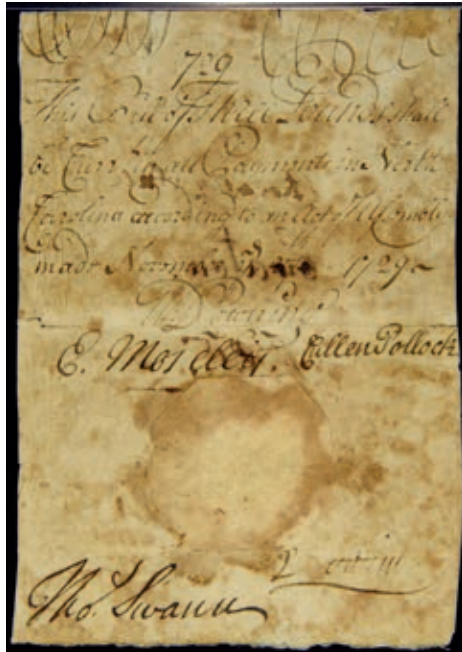 729
This Bill of Three Pounds shall
be Curr. in all Payments in North
Carolina according to an Act of Assembly
made Novemb. 1729
W. Downing
E. Moseley. Cullen Pollock
Tho. Swann